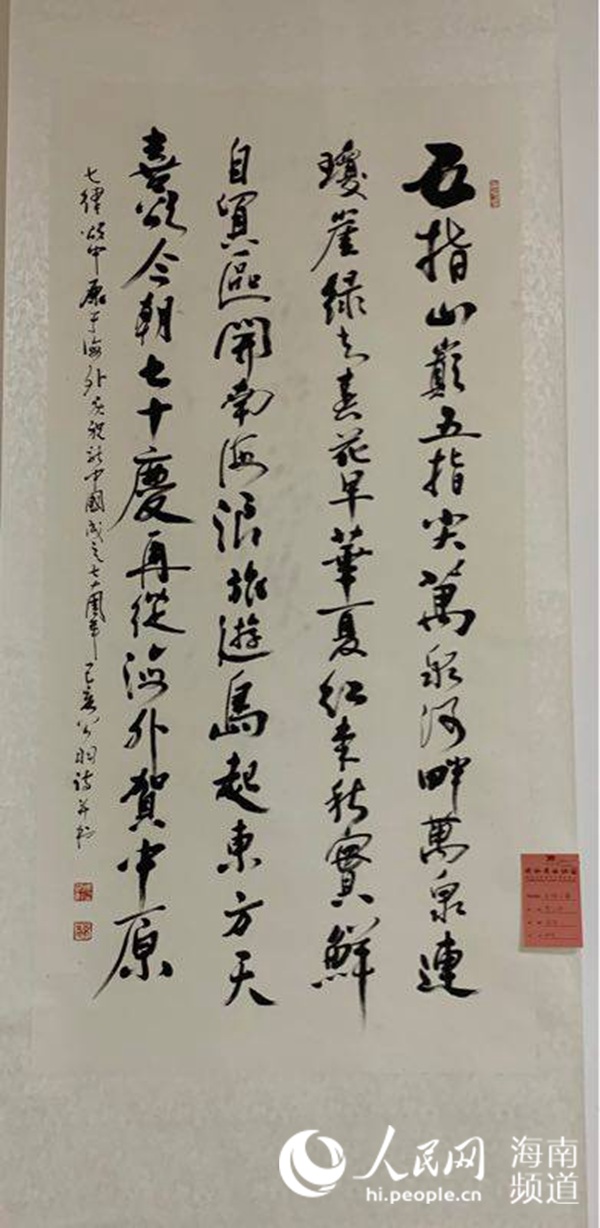 五指山巔五指尖萬泉河畔萬泉連
瓊崖綠去春花早華夏紅來秋實鮮
自貿區開南海浪旅遊島起東方天
喜從今朝七十慶再從海外賀中原
七律 中原 海外 祝 新中國成立七十周年 己亥 詩并
人民网
海南
频道
hi.people.cn